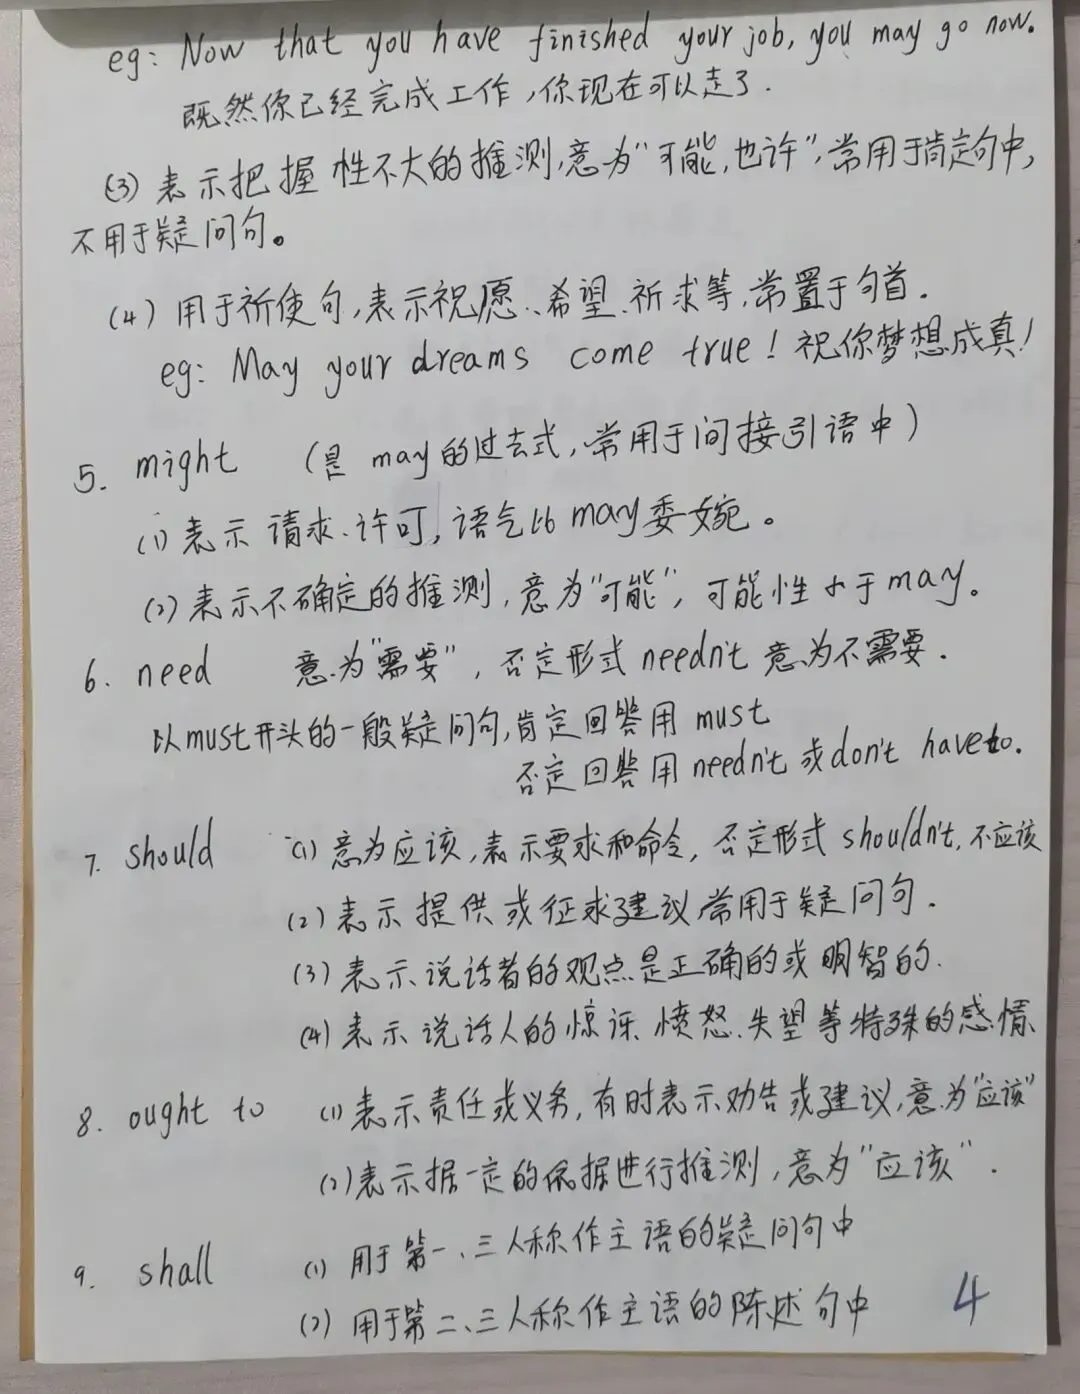 eg: Now that you have finished your job, you may go now.
既然你已经完成工作,你现在可以走了.
(3) 表示把握性不大的推测,意为"可能,也许",常用于肯定句中,
不用于疑问句。
(4) 用于祈使句,表示祝愿、希望、祈求等,常置于句首.
eg: May your dreams come true! 祝你梦想成真!
5. might (是 may的过去式,常用于间接引语中)
(1) 表示 请求、许可,语气比 may委婉。
(2) 表示不确定的推测,意为"可能",可能性小于may。
6. need 意为"需要",否定形式 needn't 意为不需要.
以must开头的一般疑问句,肯定回答用 must
否定回答用 needn't 或don't have to.
7. should (1) 意为应该,表示要求和命令,否定形式 shouldn't,不应该
(2) 表示提供或征求建议常用于疑问句.
(3) 表示说话者的观点是正确的或明智的.
(4) 表示说话人的惊讶、愤怒、失望等特殊的感情
8. ought to (1) 表示责任或义务,有时表示劝告或建议,意为"应该"
(2) 表示据一定的依据进行推测,意为"应该".
9. shall (1) 用于第一、三人称作主语的疑问句中
(2) 用于第二、三人称作主语的陈述句中
4